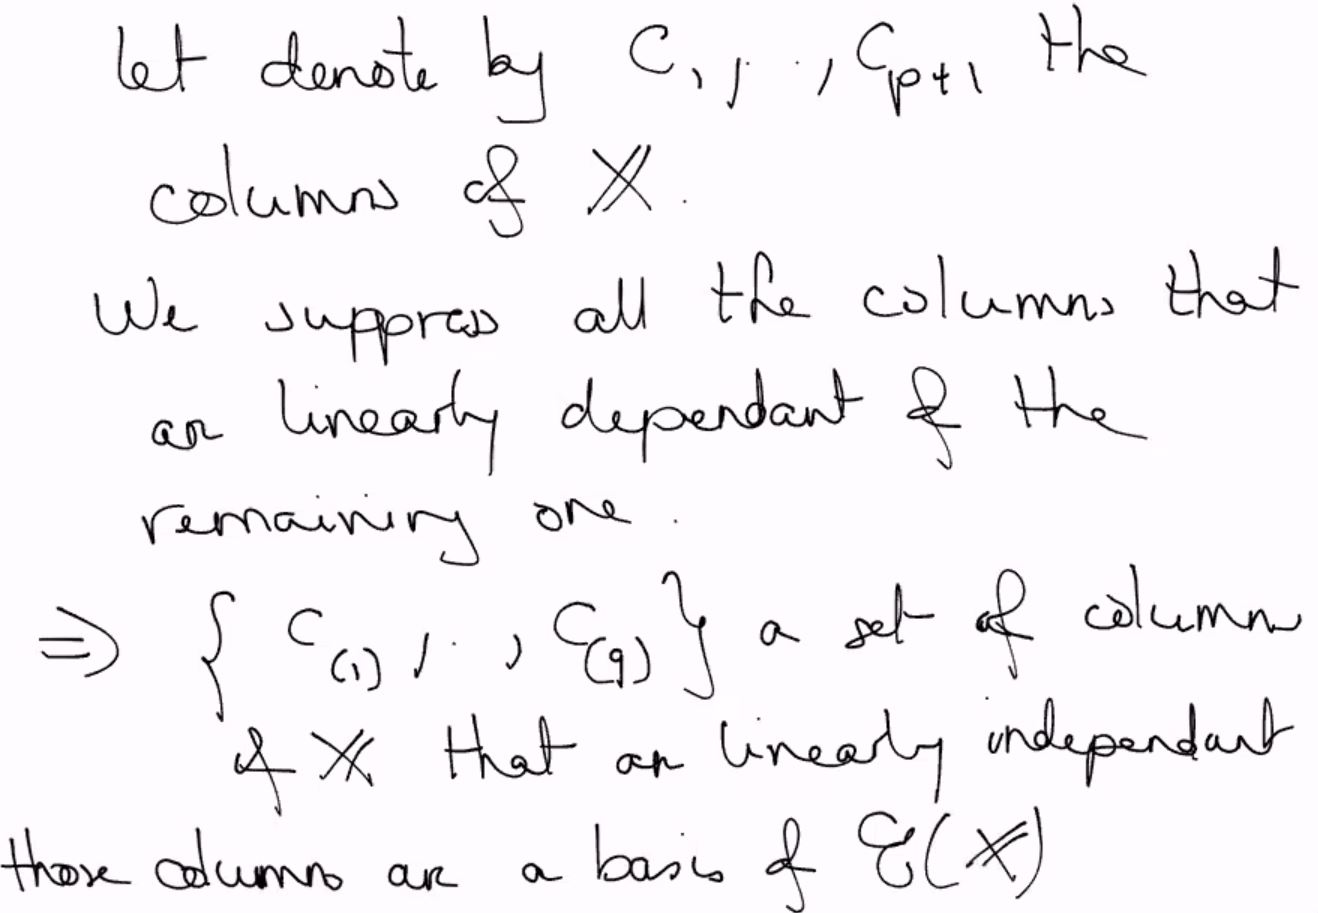 let denote by C1, . ., Cp+1 the
columns of 𝕏.
We suppress all the columns that
are linearly dependant of the
remaining one.
⇒ { C(1), . ., C(q) } a set of column
of 𝕏 that are linearly independant
those columns are a basis of ℰ(𝕏)